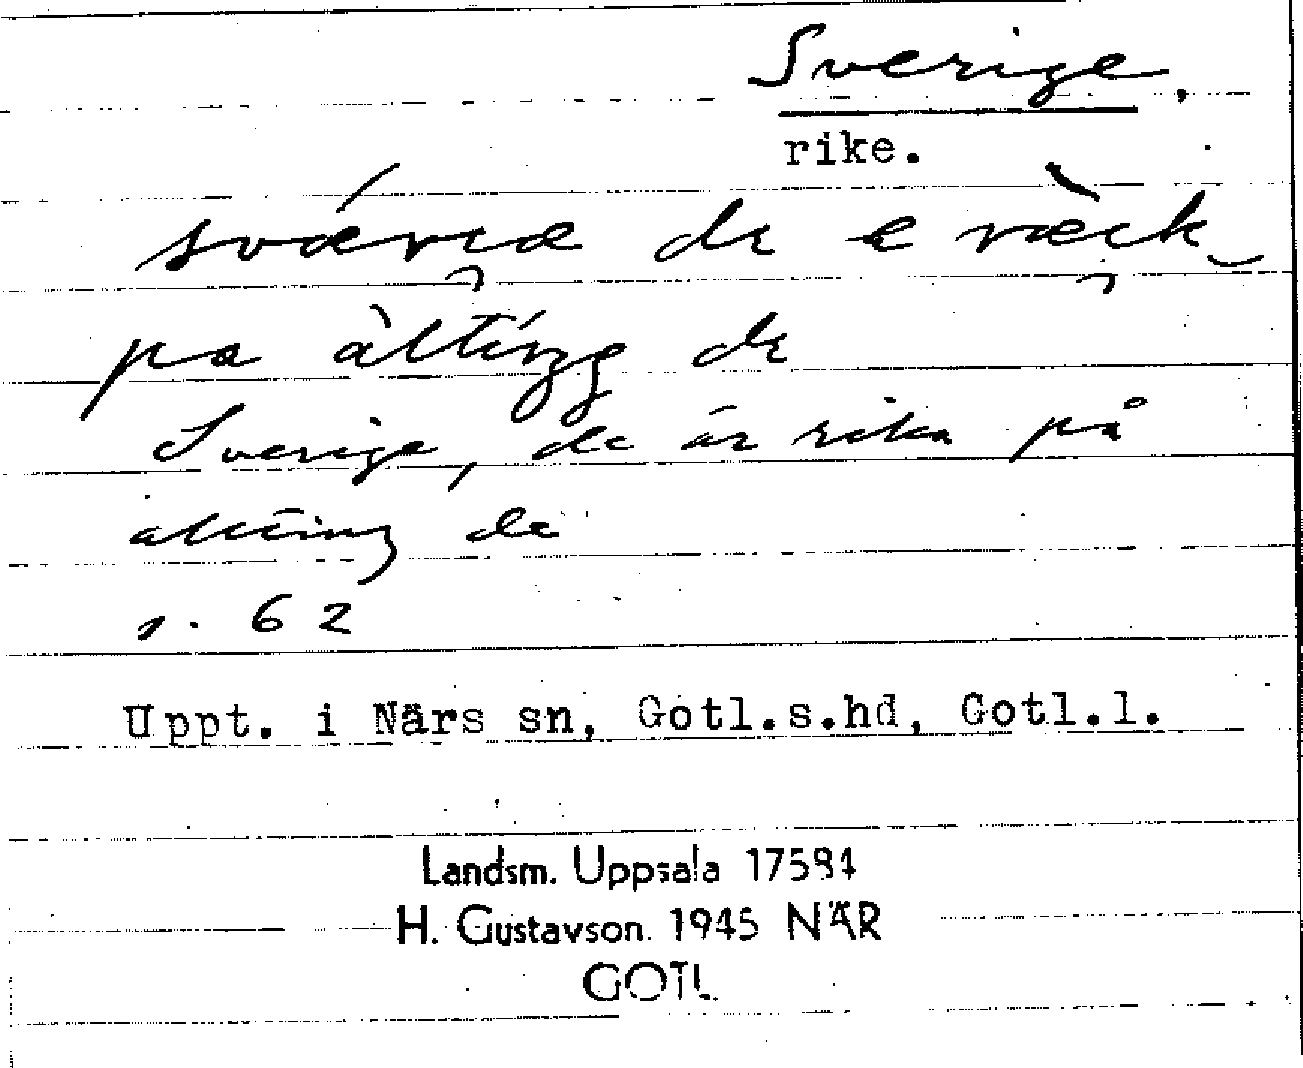 Sverige,
rike.
sværiæ de e ræik
pa àltiŋg de
Sverige, de är rika på
allting de
s. 62
Uppt. i Närs sn, Gotl.s.hd, Gotl.l.
Landsm. Uppsala 17584
H. Gustavson. 1945 NÄR
GOTL.